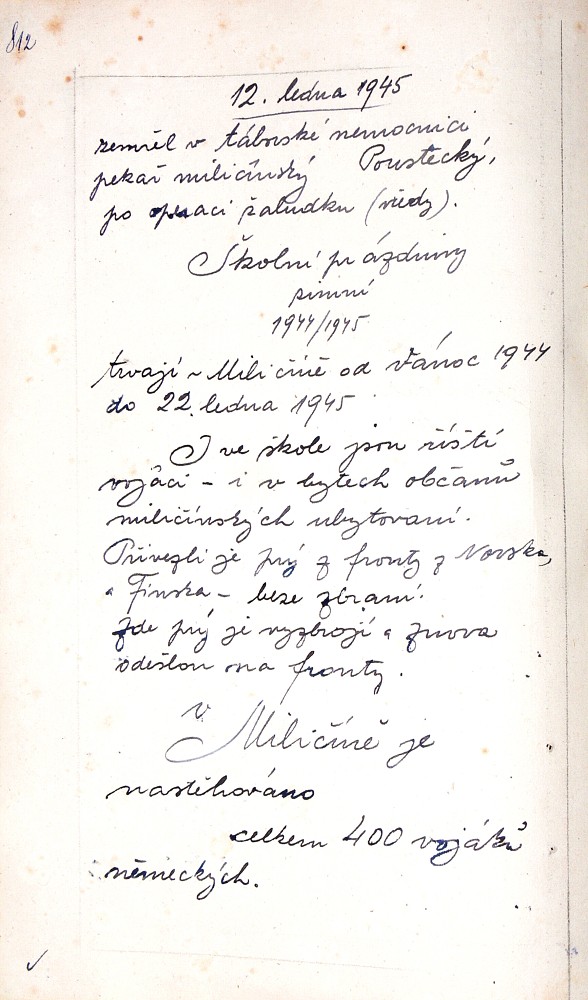 812
12. ledna 1945
zemřel v táborské nemocnici
pekař miličínský Poustecký,
po operaci žaludku (vředy).
Školní prázdniny
zimní
1944/1945
trvají v Miličíně od Vánoc 1944
do 22. ledna 1945
I ve škole jsou říští
vojáci - i v bytech občanů
miličínských ubytovaní.
Přivezli je prý z fronty z Norska,
a Finska - beze zbraní.
Zde prý je vyzbrojí a znova
odešlou na fronty.
V
Miličíně je
nastěhováno
celkem 400 vojáků
německých.